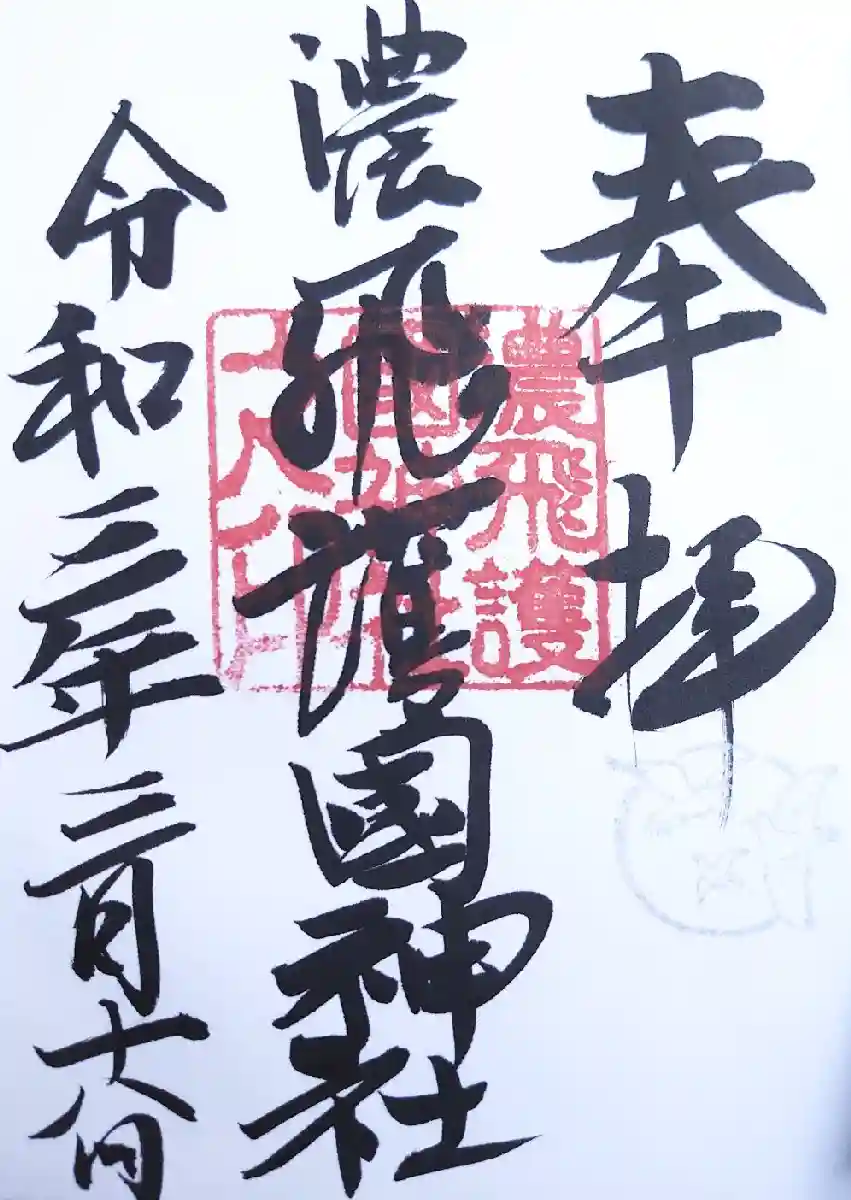 奉拝
濃飛護國神社
令和三年三月
濃飛護
國神社